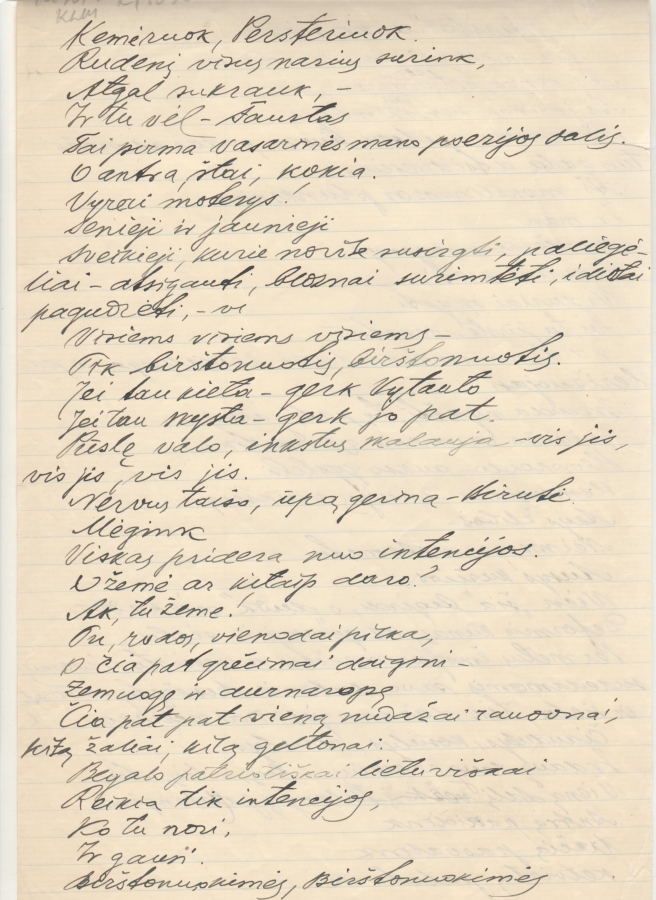 Kemėruok, Persteriuok.
Rudenį visus narius surink,
Atgal sukrauk, –
Ir tu vėl – Faustas
Tai pirma vasarinės mano poezijos dalis.
O antra, štai, kokia.
Vyrai moterys!
Senieji ir jaunieji
Sveikieji, kurie norite susirgti, paliegė-
liai – atsigauti, bloznai surimtėti, idiotai
pagudrėti, – vi
Visiems visiems visiems –
Tik birštonuotis, birštonuotis.
Jei tau kieta – gerk Vytauto
Jei tau skysta – gerk jo pat.
Pūslę valo, inkstus malauja – vis jis,
vis jis, vis jis.
Nervus taiso, ūpą gerina – Birutė.
Mėgink
Viskas pridera nuo intencijos.
O žemė ar kitaip daro?
Ak, tu žeme.
Tu, rodos, vienodai pilka,
O čia pat grėcimai daigini –
Žemuogę ir durnaropę
Čia pat pat vieną nudažai raudonai,
kitą žaliai, kitą geltonai.
Begalo patriotiškai lietuviškai
Reikia tik intencijos,
Ko tu nori,
Ir gausi.
Birštonuokimės, Birštonuokimės